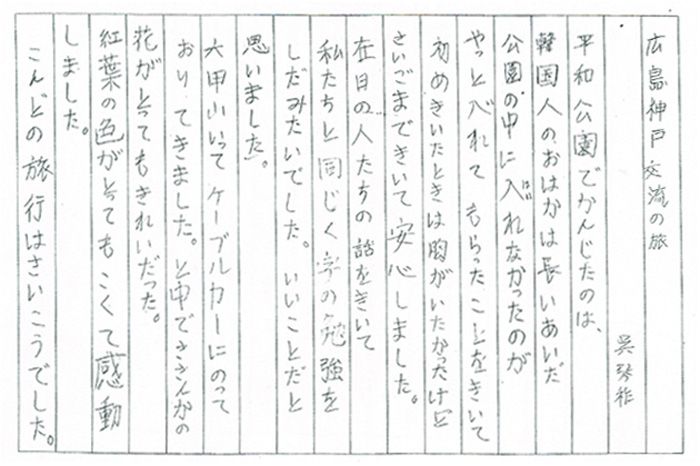 広島神戸交流の旅
呉琴祚
平和公園でかんじたのは、
韓国人のおはかは長いあいだ
公園の中に入れなかったのが
はい
やっと入れてもらったことをきいて
初めきいたときは胸がいたかったけど
さいごまできいて安心しました。
在日の人たちの話をきいて
私たちと同じく字の勉強を
しだみたいでした。いいことだと
思いました。
六甲山いってケーブルカーにのって
おりてきました。と中でさざんかの
花がとってもきれいだった。
紅葉の色がとてもこくて感動
しました。
こんどの旅行はさいこうでした。